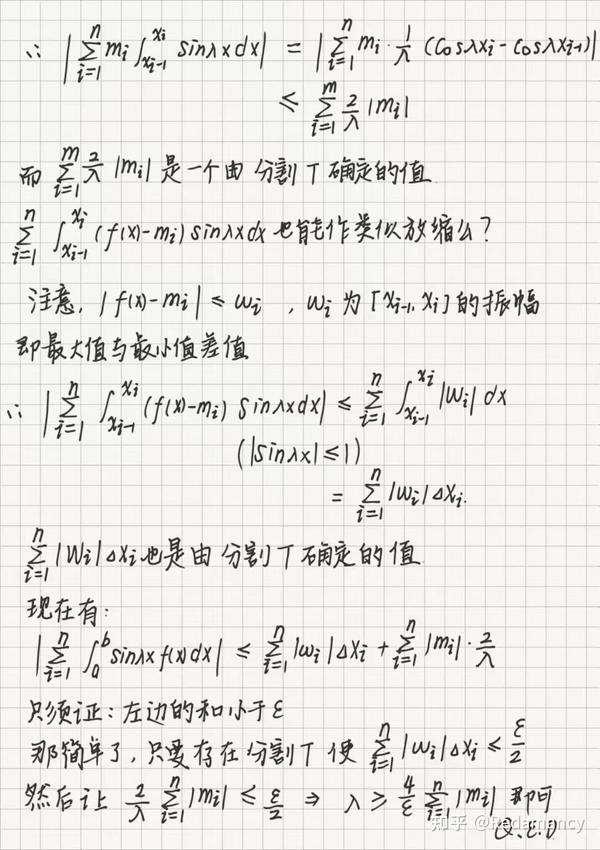 ∴ |∑_{i=1}^{n} m_i ∫_{x_{i-1}}^{x_i} sinλx dx| = |∑_{i=1}^{n} m_i · 1/λ (cosλx_i - cosλx_{i-1})|
≤ ∑_{i=1}^{m} 2/λ |m_i|
而 ∑_{i=1}^{m} 2/λ |m_i| 是一个由分割T确定的值
∑_{i=1}^{n} ∫_{x_{i-1}}^{x_i} (f(x)-m_i) sinλx dx 也能作类似放缩么?
注意, |f(x)-m_i| ≤ w_i , w_i 为 [x_{i-1}, x_i] 的振幅
即最大值与最小值差值
∴ |∑_{i=1}^{n} ∫_{x_{i-1}}^{x_i} (f(x)-m_i) sinλx dx| ≤ ∑_{i=1}^{n} ∫_{x_{i-1}}^{x_i} |w_i| dx
(|sinλx| ≤ 1)
= ∑_{i=1}^{n} |w_i| Δx_i.
∑_{i=1}^{n} |w_i| Δx_i 也是由分割T确定的值
现在有:
|∑_{i=1}^{n} ∫_a^b sinλx f(x) dx| ≤ ∑_{i=1}^{n} |w_i| Δx_i + ∑_{i=1}^{n} |m_i| · 2/λ
只须证: 左边的和小于ε
那简单了, 只要存在分割T 使 ∑_{i=1}^{n} |w_i| Δx_i ≤ ε/2
然后让 2/λ ∑_{i=1}^{n} |m_i| ≤ ε/2 ⇒ λ ≥ 4/ε ∑_{i=1}^{n} |m_i| 即可
Q.E.D
知乎 @Redamancy